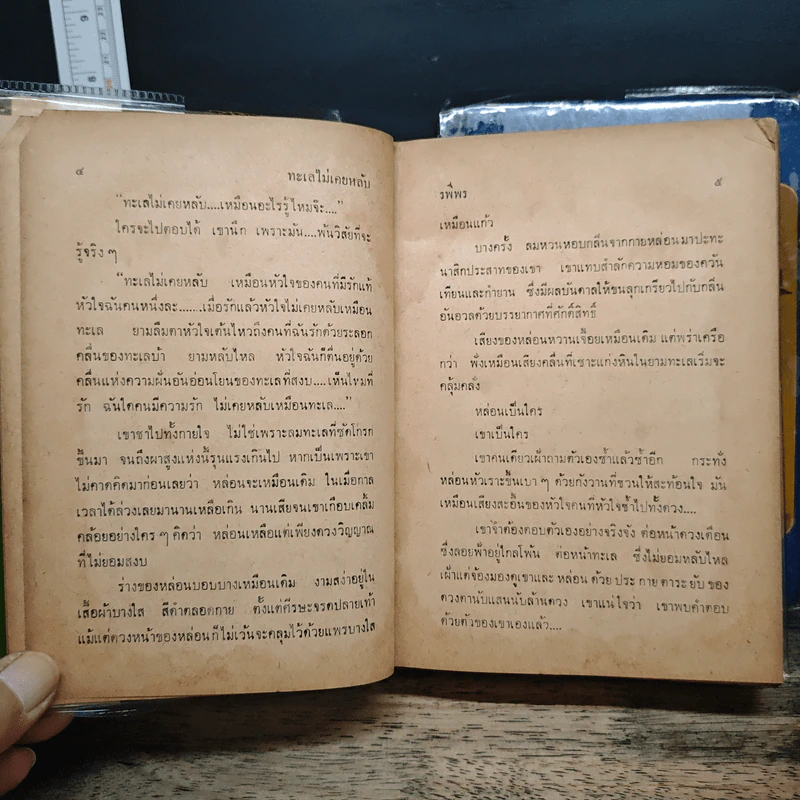 ๔
ทะเลไม่เคยหลับ
“ทะเลไม่เคยหลับ....เหมือนอะไรรู้ไหมจ๊ะ....”
ใครจะไปตอบได้ เขานึก เพราะมัน....พ้นวิสัยที่จะ
รู้จริง ๆ
“ทะเลไม่เคยหลับ เหมือนหัวใจของคนที่มีรักแท้
หัวใจฉันคนหนึ่งละ.......เมื่อรักแล้วหัวใจไม่เคยหลับเหมือน
ทะเล ยามลืมตาหัวใจเต้นไหวถึงคนที่ฉันรักด้วยระลอก
คลื่นของทะเลบ้า ยามหลับไหล หัวใจฉันก็ตื่นอยู่ด้วย
คลื่นแห่งความฝันอันอ่อนโยนของทะเลที่สงบ....เห็นไหมที่
รัก ฉันใดคนมีความรัก ไม่เคยหลับเหมือนทะเล....”
เขาชาไปทั้งกายใจ ไม่ใช่เพราะลมทะเลที่ซัดโกรก
ขึ้นมา จนถึงผาสูงแห่งนี้รุนแรงเกินไป หากเป็นเพราะเขา
ไม่คาดคิดมาก่อนเลยว่า หล่อนจะเหมือนเดิม ในเมื่อกาล
เวลาได้ล่วงเลยมานานเหลือเกิน นานเสียจนเขาเกือบเคลิ้ม
คล้อยอย่างใคร ๆ คิดว่า หล่อนเหลือแต่เพียงดวงวิญญาณ
ที่ไม่ยอมสงบ
ร่างของหล่อนบอบบางเหมือนเดิม งามสง่าอยู่ใน
เสื้อผ้าบางใส สีดำตลอดกาย ตั้งแต่ศีรษะจรดปลายเท้า
แม้แต่ดวงหน้าของหล่อนก็ไม่เว้นจะคลุมไว้ด้วยแพรบางใส
รพีพร
๕
เหมือนแก้ว
บางครั้ง ลมหวนหอบกลิ่นจากกายหล่อนมาปะทะ
นาสิกประสาทของเขา เขาแทบสำลักความหอมของควัน
เทียนและกำยาน ซึ่งมีผลบันดาลให้ขนลุกเกรียวไปกับกลิ่น
อันอวลด้วยบรรยากาศที่ศักดิ์สิทธิ์
เสียงของหล่อนหวานเจื้อยเหมือนเดิม แต่พร่าเครือ
กว่า ฟังเหมือนเสียงคลื่นที่เซาะแก่งหินในยามทะเลเริ่มจะ
คลุ้มคลั่ง
หล่อนเป็นใคร
เขาเป็นใคร
เขาคนเดียวเฝ้าถามตัวเองซ้ำแล้วซ้ำอีก กระทั่ง
หล่อนหัวเราะขึ้นเบา ๆ ด้วยกังวานที่ชวนให้สะท้อนใจ มัน
เหมือนเสียงสะอื้นของหัวใจคนที่หัวใจช้ำไปทั้งดวง....
เขาจำต้องตอบตัวเองอย่างจริงจัง ต่อหน้าดวงเดือน
ซึ่งลอยฟ้าอยู่ไกลโพ้น ต่อหน้าทะเล ซึ่งไม่ยอมหลับไหล
เฝ้าแต่จ้องมองดูเขาและ หล่อน ด้วย ประ กาย ดาระ ยับ ของ
ดวงตานับแสนนับล้านดวง เขาแน่ใจว่า เขาพบคำตอบ
ด้วยตัวของเขาเองแล้ว....